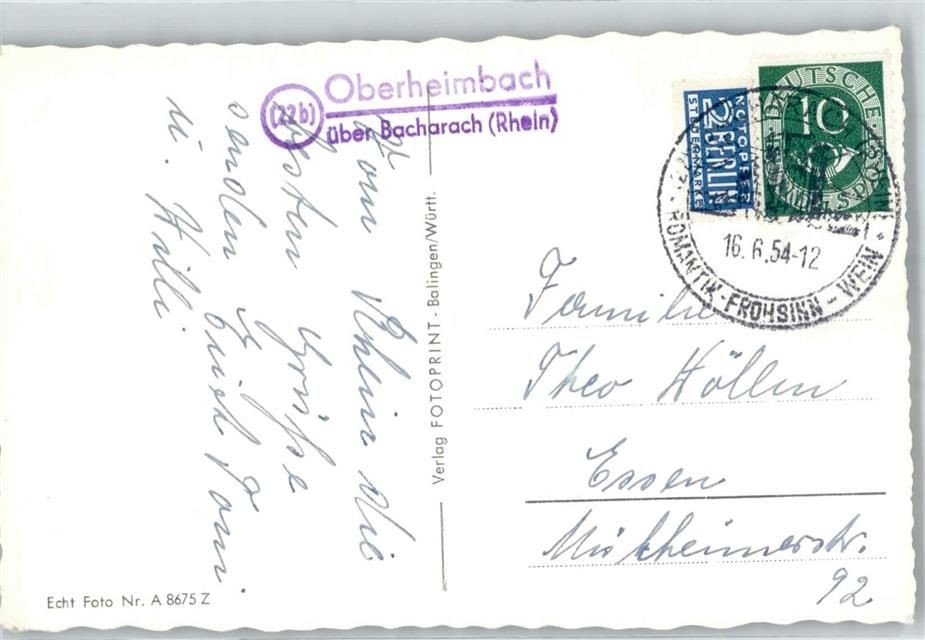 (22b)
Oberheimbach
über Bacharach (Rhein)
NOTOPFER
2 BERLIN
STEUERMARKE
DEUTSCHE
10
BUNDESPOST
16.6.54-12
ROMANTIK - FROHSINN - WEIN
Vom Rhein die
besten Grüße
senden Euch Fam.
u. Willi
Verlag FOTOPRINT - Balingen/Württ.
Familie
Theo Höllen
Essen
Mülheimerstr.
92
Echt Foto Nr. A 8675 Z